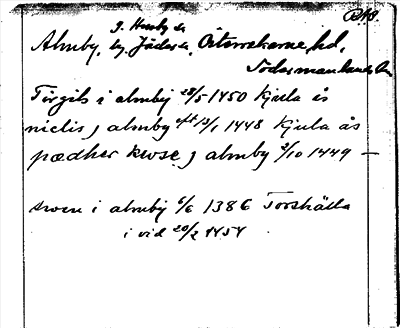 RAP.
J. Husby sn
Almby, by, Jäders sn, Österrekarne hd,
Södermanlands län
Torgils i almby 28/5 1450 Kjula ås
niclis j almby eft 13/1 1448 Kjula ås
pædher kwse j almby 2/10 1449 —
swen i almby 6/6 1386 Torshälla
i vid 20/2 1454